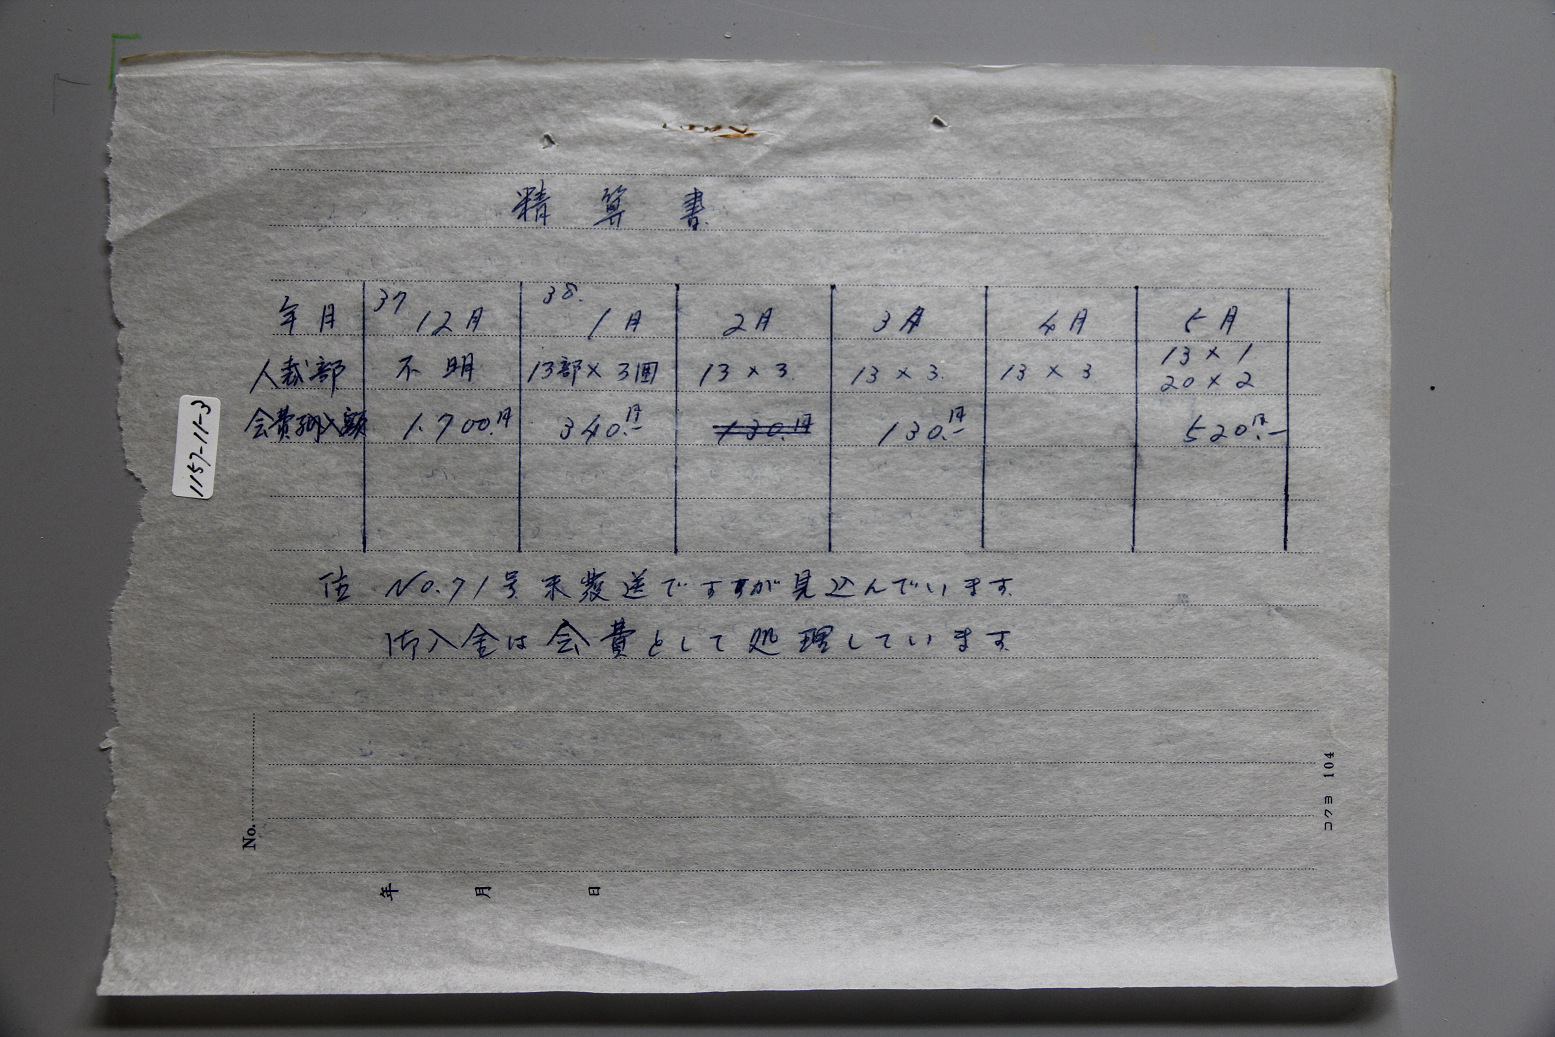 精算書
年月 37 12月 38. 1月 2月 3月 4月 5月
人裁部 不明 13部×3回 13×3. 13×3. 13×3. 13×1 20×2
会費納入額 1.700.円 340.円— 130.円 130.円— 520.円—
No.71号未発送ですが見込んでいます.
御入金は会費として処理しています.
1157-11-3
No.
年 月 日
コクヨ 104